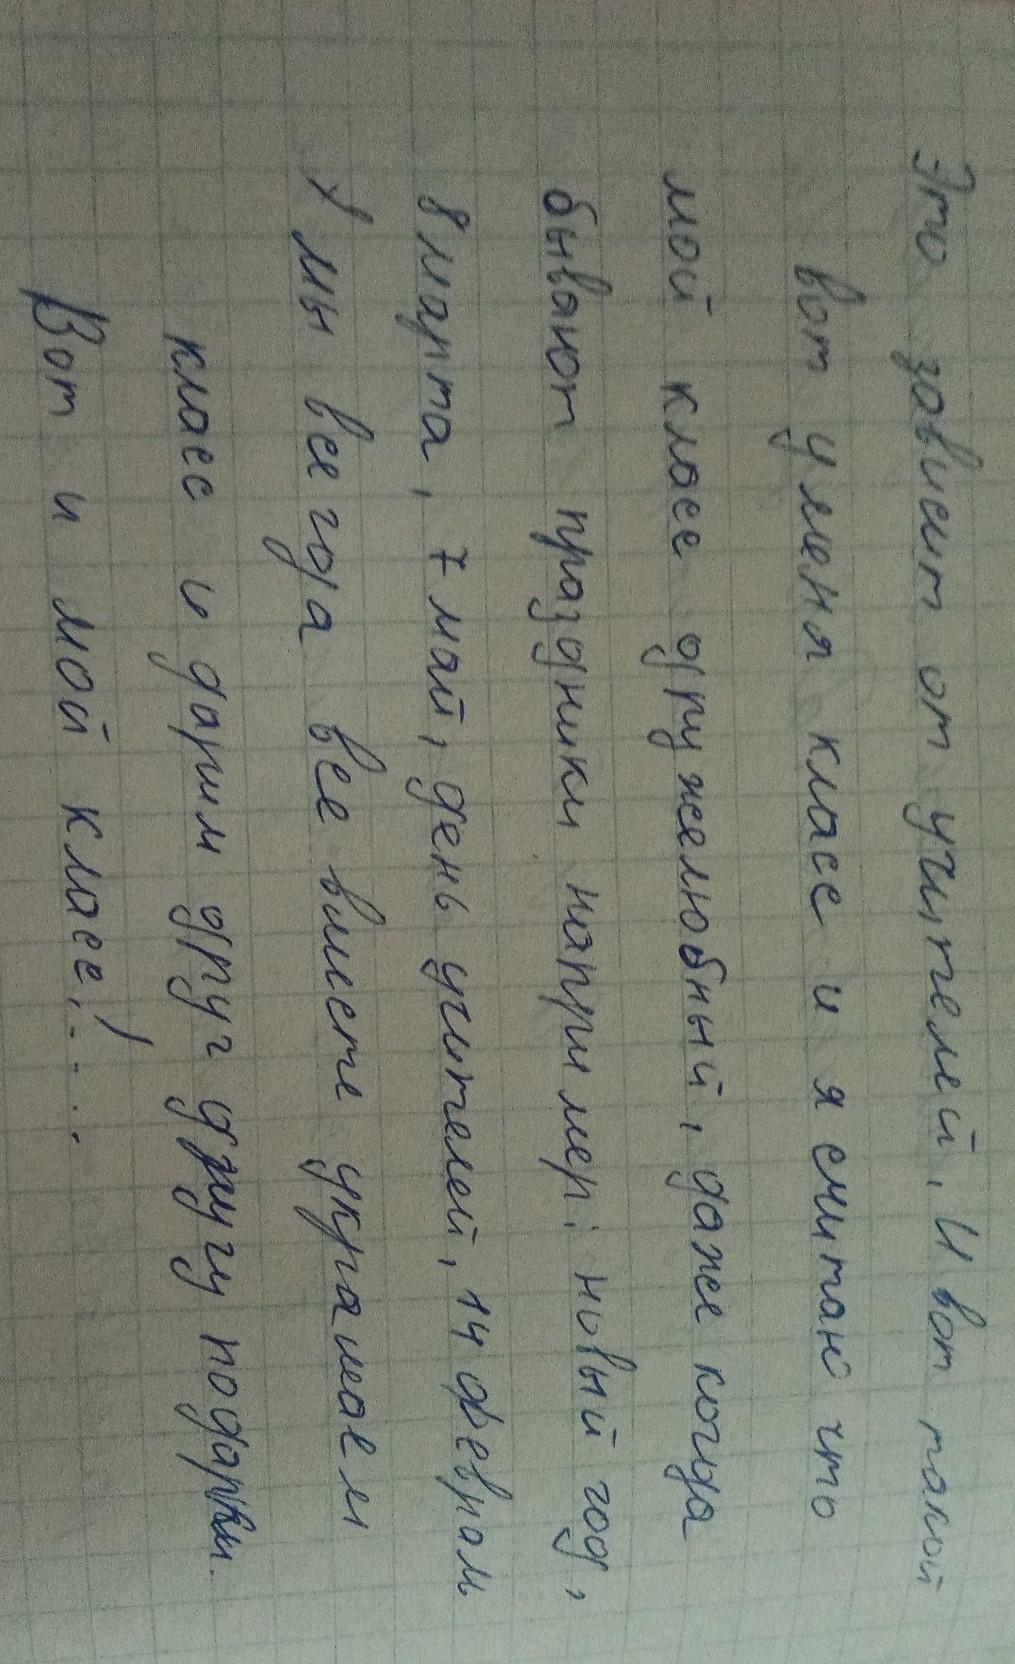 Это зависит от учителей. И вот такой
вот у меня класс и я считаю что
мой класс дружелюбный, даже когда
бывают праздники например: новый год,
8 марта, 7 май, день учителей, 14 феврал
У мы всегда все вместе украшаем
класс и дарим друг другу подарки.
Вот и мой класс!...